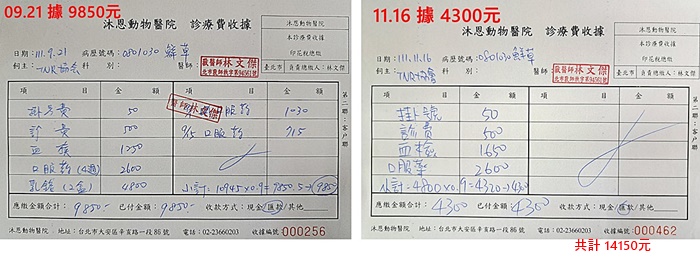 09.21 據 9850元
沐恩動物醫院 診療費收據
沐恩動物醫院
本診療費收據
印花稅總繳
臺北市 負責總繳人：林文傑
日期：111.9.21 病歷號碼：0801030 鮮草
飼主：TNR協會 科別： 醫師：
獸醫師 林文傑
項 目 金 額 項 目 金 額
掛号費 50 口服藥 1030
診費 500 9/15 口服藥 715
血檢 1250
口服藥(4週) 2600
乳鐵(2盒) 4800 小計：10945×0.9=9850.5→9850
應繳金額合計：9850- 已付金額：9850- 收款方式：現金/匯款/其他
第二聯：客戶聯
沐恩動物醫院 地址：台北市大安區辛亥路一段86號 電話：02-23660203 收據編號：000256
11.16 據 4300元
沐恩動物醫院 診療費收據
沐恩動物醫院
本診療費收據
印花稅總繳
臺北市 負責總繳人：林文傑
日期：111.11.16 病歷號碼：0801030 鮮草
飼主：TNR協會 科別： 醫師：
獸醫師 林文傑
項 目 金 額 項 目 金 額
掛號 50
診費 500
血檢 1650
口服藥 2600
小計：4800×0.9=4320→4300
應繳金額合計：4300 已付金額：4300 收款方式：現金/匯款/其他
第二聯：客戶聯
沐恩動物醫院 地址：台北市大安區辛亥路一段86號 電話：02-23660203 收據編號：000462
共計 14150元